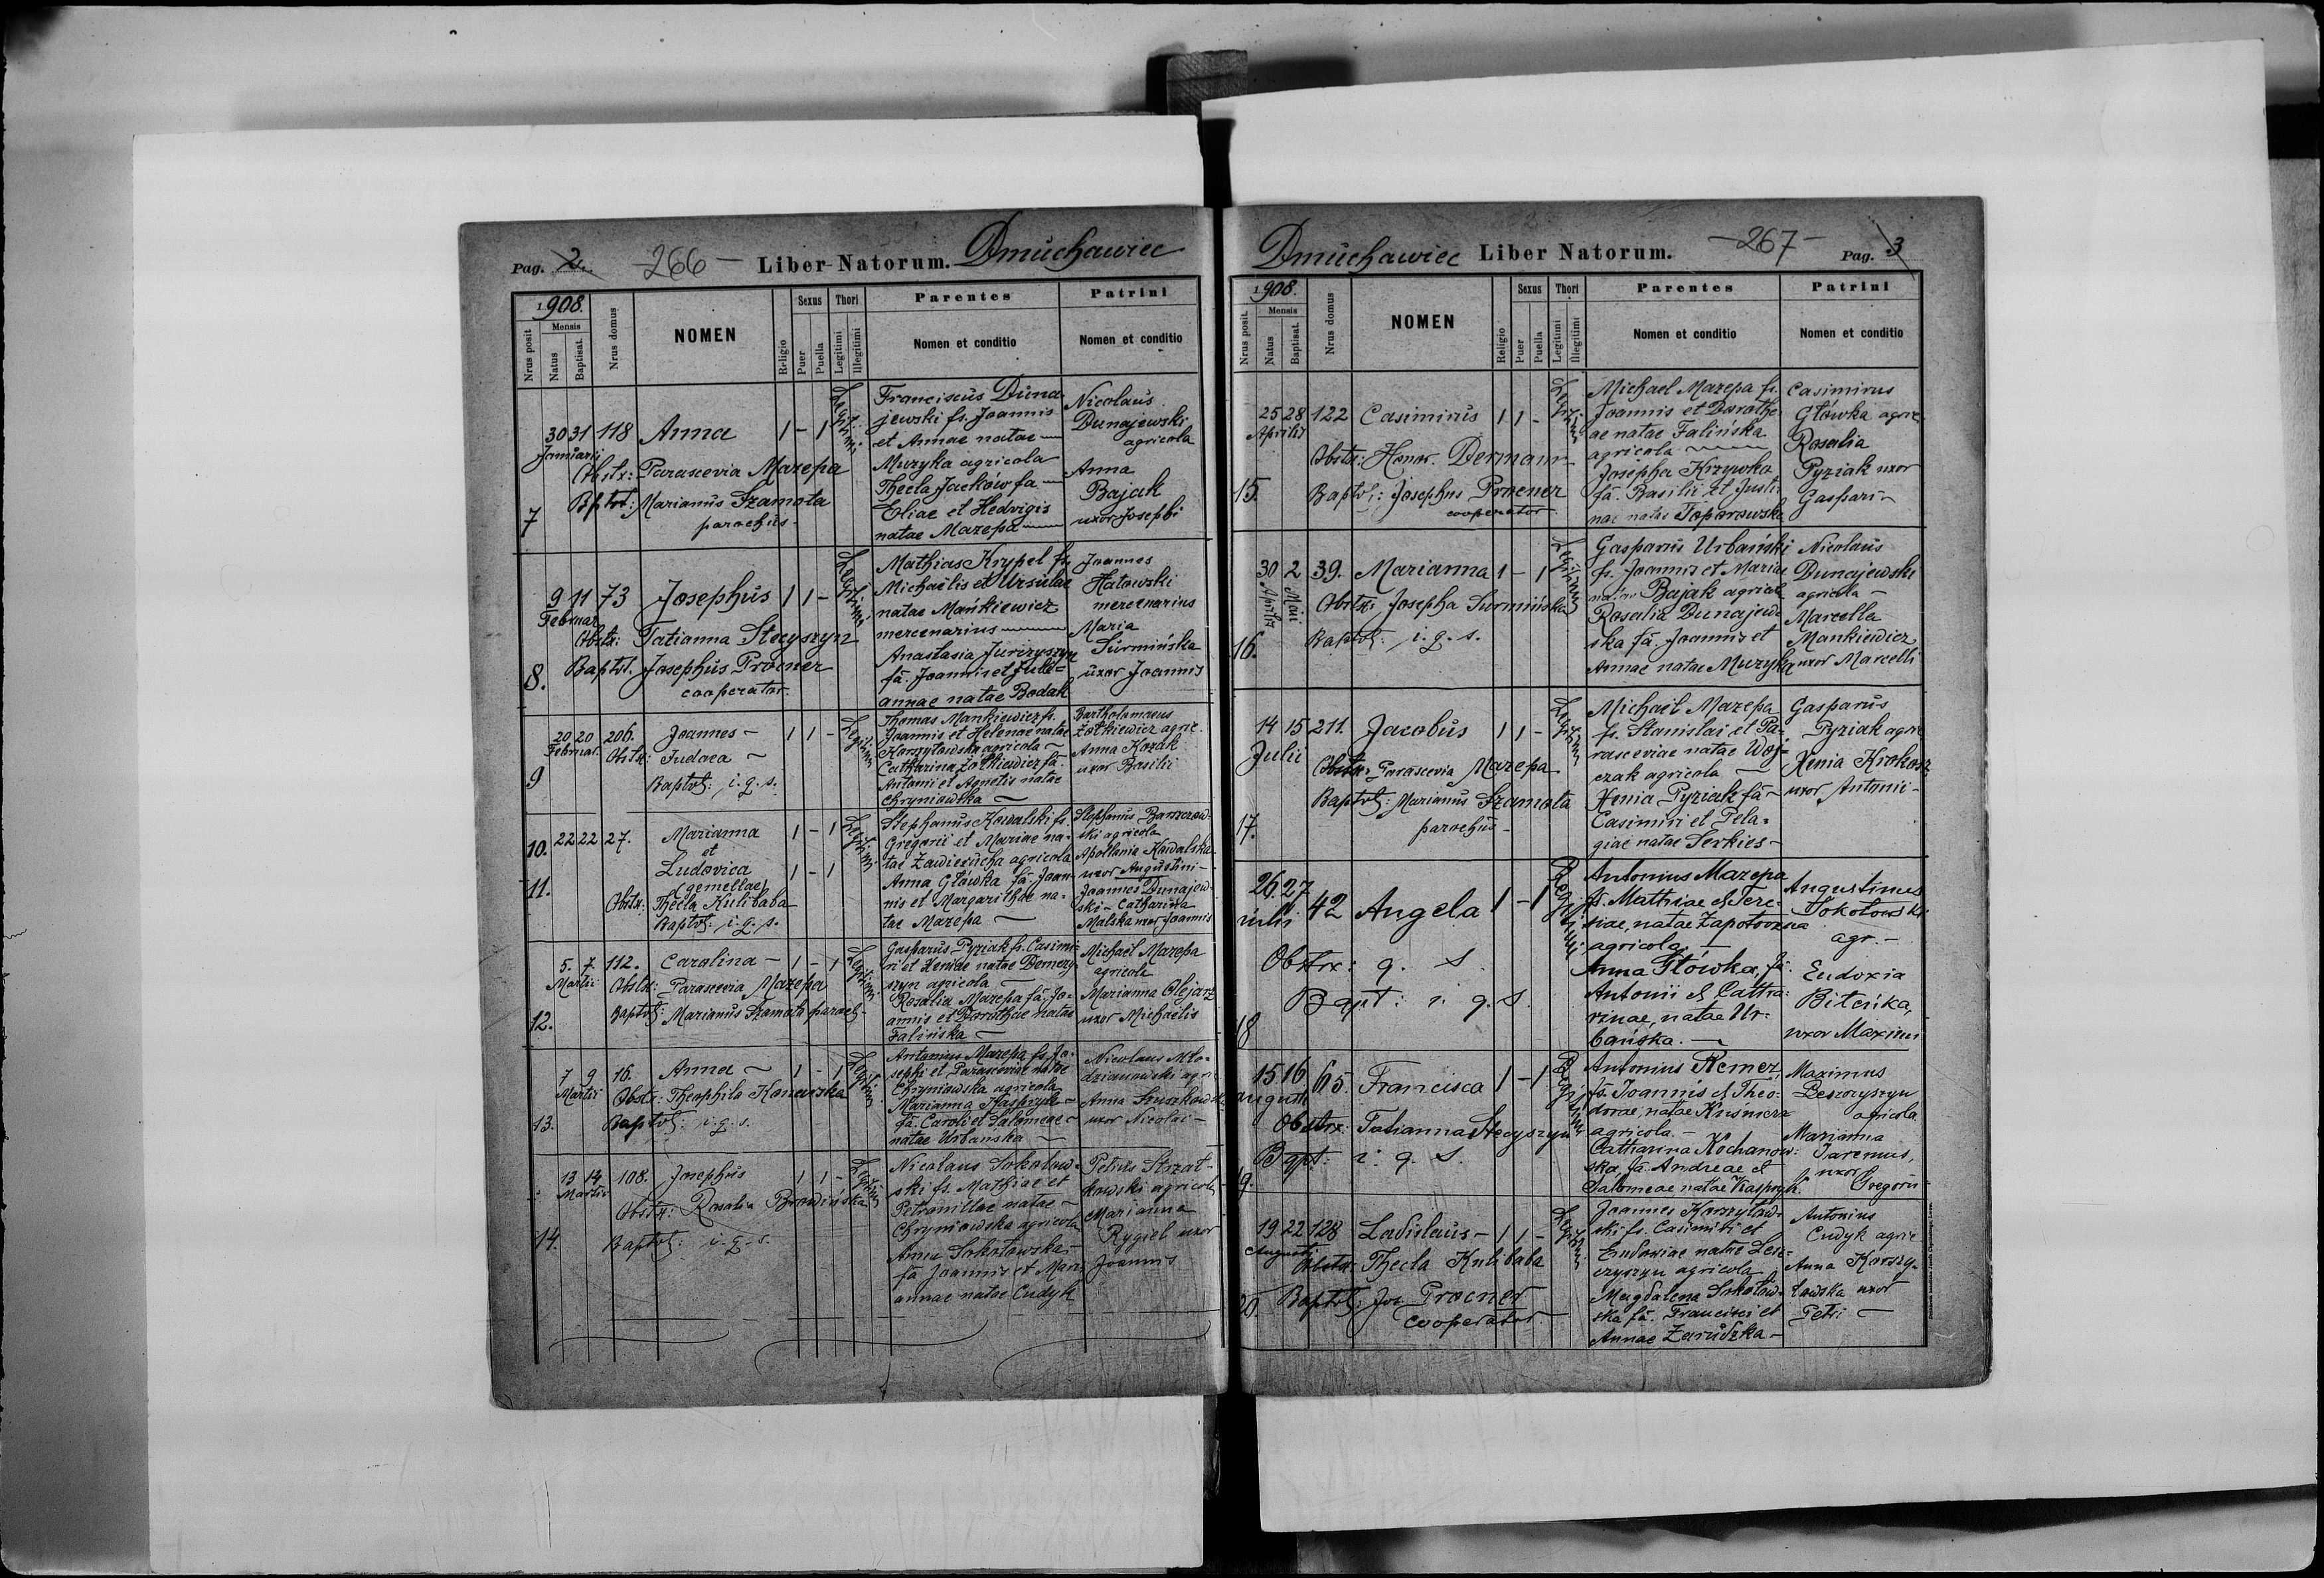 Pag. 2. -266- Liber Natorum. Dmuchawiec
1908.
Nrus posit
Mensis
Natus
Baptisat.
Nrus domus
NOMEN
Religio
Sexus
Puer
Puella
Thori
Legitimi
Illegitimi
Parentes
Nomen et conditio
Patrini
Nomen et conditio
7
30 31 118 Anna 1 - 1 Legitimi
Januarii
Obstx: Parascevia Mazepa
Bptvt: Marianus Szamota
parochus
Franciscus Duna
jewski fs. Joannis
et Annae natae
Muzyka agricola
Thecla Jacków fa
Eliae et Hedvigis
natae Mazepa
Nicolaus
Dunajewski
agricola
Anna
Bajak
uxor Josephi
8.
9 11 73 Josephus 1 1 - Legitimi
Februar.
Obstx: Tatianna Stecyszyn
Baptvt. Josephus Procner
cooperator.
Mathias Krypel fs.
Michaëlis et Ursulae
natae Mańkiewicz
mercenarius
Anastasia Jurizyszyn
fa. Joannis et Juli-
annae natae Bodak
Joannes
Hatowski
mercenarius
Maria
Surmińska
uxor Joannis
9
20 20 206. Joannes - 1 1 - Legitimi
Februar.
Obstx: Judaea
Baptvt: i. q. s.
Thomas Mankiewicz fs.
Joannis et Helenae natae
Korzytowska agricola
Catharina Żółkiewicz fa.
Antonii et Agnetis natae
Chryniowska
Bartholomaeus
Żółkiewicz agric.
Anna Kozak
uxor Basilii
10. 22 22 27. Marianna 1 - 1 Legitimi
et
11.
Ludovica 1 - 1
(gemellae)
Obstx: Thecla Kulibaba
Baptvt: i. q. s.
Stephanus Kowalski fs.
Gregorii et Mariae na-
tae Zawierucha agricola
Anna Główka fa. Joan-
nis et Margarithae na-
tae Mazepa
Stephanus Barszczow-
ski agricola
Apollonia Kowalska
uxor Augustini -
Joannes Dunajew-
ski - Catharina
Malska uxor Joannis
12.
5. 7. 112. Carolina - 1 - 1 Legitimi
Martii
Obstx: Parascevia Mazepa
Baptvt: Marianus Szamota paroch.
Gasparus Pyziak fs. Casimi-
ri et Xeniae natae Demezy-
szyn agricola
Rosalia Mazepa fa. Jo-
annis et Dorothae natae
Falińska
Michaël Mazepa
agricola
Marianna Olejarz
uxor Michaëlis
13.
7 9 16. Anna 1 - 1 Legitimi
Martii
Obstx: Theophila Kanewska
Baptvt: i. q. s.
Antonius Mazepa fs. Jo-
sephi et Parasceviae natae
Chryniowska agricola
Marianna Kasprzyk
fa. Caroli et Salomeae
natae Urbańska
Nicolaus Mło-
dzianowski agri
Anna
uxor Nicolai -
14.
13 14 108. Josephus 1 1 - Legitimi
Martii
Obstx: Rosalia Browińska
Baptvt: i. q. s.
Nicolaus Sokołow-
ski fs. Mathiae et
Petronillae natae
Chryniowska agricola
Anna Sokołowska
fa Joannis et Mari-
annae natae Cudyk
Petrus Strzał-
kowski agricola
Marianna
Rygiel uxor
Joannis
Dmuchawiec Liber Natorum. -267- Pag. 3
1908.
Nrus posit.
Mensis
Natus
Baptisat.
Nrus domus
NOMEN
Religio
Sexus
Puer
Puella
Thori
Legitimi
Illegitimi
Parentes
Nomen et conditio
Patrini
Nomen et conditio
15.
25 28 122 Casimirus 1 1 - Legitimi
Aprilis
Obstx: Honor. Dermann
Baptvt: Josephus Procner
cooperator
Michael Mazepa fs.
Joannis et Dorothe-
ae natae Falińska
agricola
Josepha Krzywka
fa. Basilii et Justi-
nae natae Toporowska
Casimirus
Główka agric.
Rosalia
Pyziak uxor
Gaspari
16.
30 2 39. Marianna 1 - 1 Legitimi
Aprilis Maii
Obstx: Josepha Surmińska
Baptvt: i. q. s.
Gasparus Urbański
fs. Joannis et Mariae
natae Bajak agricol
Rosalia Dunajew-
ska fa. Joannis et
Annae natae Muzyka
Nicolaus
Dunajewski
agricola -
Marcella
Mankiewicz
uxor Marcelli
17.
14 15 211. Jacobus 1 1 - Legitimi
Julii
Obstx: Parascevia Mazepa
Baptvt: Marianus Szamota
parochus
Michaël Mazepa
fs. Stanislai et Pa-
rasceviae natae Woj-
czak agricola
Xenia Pyziak fa
Casimiri et Pela-
giae natae Serkies
Gasparus
Pyziak agric
Xenia Krokosz
uxor Antonii -
18
26 27 42 Angela 1 - 1 Legitimi
iulii
Obstrx: q. s.
Bapt: i. q. s.
Antonius Mazepa
fs. Mathiae et Tere-
siae, natae Zapotoczna
agricola.
Anna Główka, fa.
Antonii et Catha-
rinae, natae Ur-
bańska.
Augustinus
Sokołowski
agr. -
Eudoxia
Biteńka,
uxor Maximi
19.
15 16 65. Francisca 1 - 1 Legitimi
augusti
Obstrx: Tatianna Stecyszyn
Bapt: i. q. s.
Antonius Remez,
fs. Joannis et Theo-
dorae, natae Kuśnierz
agricola. -
Catharina Kochanow-
ska, fa. Andreae et
Salomeae natae Kasprzyk.
Maximus
Leszczyszyn
agricola
Marianna
Jaremus,
uxor
Gregorii
20.
19 22 128 Ladislaus - 1 1 - Legitimi
Augusti
Obstx: Thecla Kulibaba
Baptvt: Jos. Procner
cooperator.
Joannes Korzytow-
ski fs. Casimiri et
Eudoxiae natae Lesz-
czyszyn agricola
Magdalena Sokołow-
ska fa. Francisci et
Annae Zarudzka -
Antonius
Cudyk agric
Anna Korzy-
towska uxor
Petri -